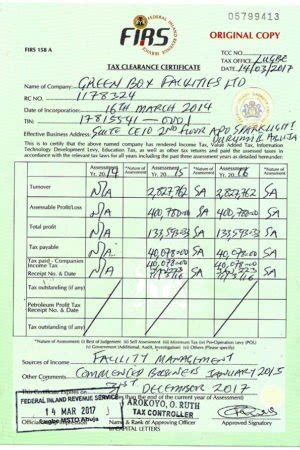 05799413
FIRS
FEDERAL INLAND REVENUE SERVICE
FIRS 158 A
ORIGINAL COPY
TAX CLEARANCE CERTIFICATE
TCC NO.
TAX OFFICE LUGBE
DATE 14/03/2017
Name of Company: GREEN BOX FACILITIES LTD
RC NO. 1178324
Date of Incorporation: 16TH MARCH 2014
TIN: 17815541-0001
Effective Business Address: SUITE CE10 2ND FLOOR APO SPARKLIGHT ABUJA
This is to certify that the above named company has rendered Income Tax, Value Added Tax, Information
Technology Development Levy, Education Tax, as well as other tax returns and paid the assessed taxes in
accordance with the relevant tax laws for all years including the past three assessment years as detailed hereunder:
Assessment Yr. 2014 *Nature of Assessment Assessment Yr. 2015 *Nature of Assessment Assessment Yr. 2016 *Nature of Assessment
Turnover N/A 2,827,762 SA 2,827,762 SA
Assessable Profit/Loss N/A 400,780.00 SA 400,780.00 SA
Total profit N/A 133,593.03 SA 133,593.03 SA
Tax payable N/A 40,078.00 SA 40,078.00 SA
Tax paid - Companies Income Tax N/A 40,078.00 SA 40,078.00 SA
Receipt No. & Date
Tax outstanding (if any)
Petroleum Profit Tax
Receipt No. & Date
Tax Outstanding (if any)
*Nature of Assessment: i) Best of Judgement ii) Self Assessment iii) Minimum Tax iv) Pre-Operation Levy (POL)
v) Government (Additional, Audit, Investigation) vi) Others (Please specify)
Sources of Income: FACILITY MANAGEMENT
Other Comments: COMMENCED BUSINESS JANUARY 2015
This Certificate Expires on 31ST DECEMBER 2017
FEDERAL INLAND REVENUE SERVICE
14 MAR 2017
Lugbe MSTO Abuja
AROKOYO, O. RUTH
TAX CONTROLLER
Official Stamp
Name & Rank of Approving Officer
IN CAPITAL LETTERS
Signature of Approving Officer